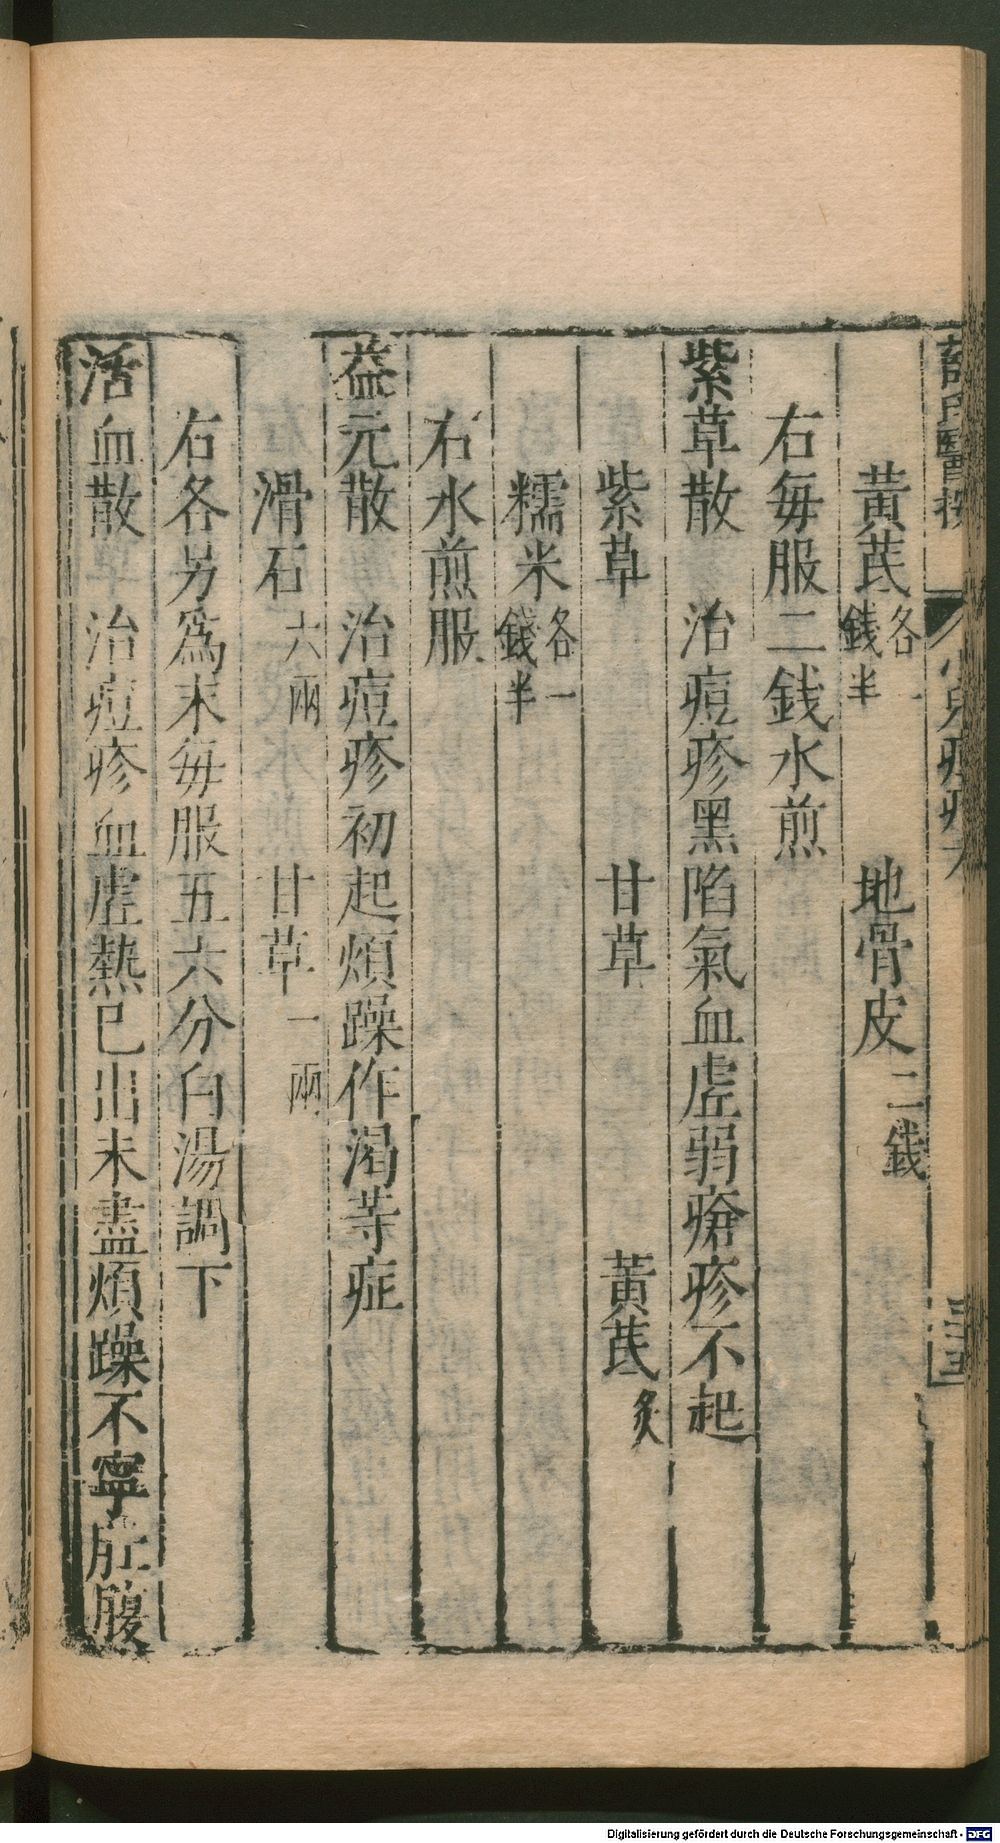 黃芪各一錢半　地骨皮二錢
右每服二錢水煎
紫草散　治痘疹黑陷氣血虛弱瘡疹不起
紫草　甘草　黃芪炙
糯米各一錢半
右水煎服
益元散　治痘疹初起煩躁作渴等症
滑石六兩　甘草一兩
右各另爲末每服五六分白湯調下
活血散　治痘疹血虛熱已出未盡煩躁不寧肚腹
Digitalisierung gefördert durch die Deutsche Forschungsgemeinschaft - DFG